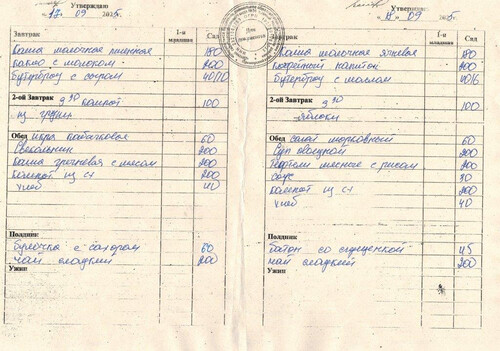 Утверждаю
09
Завтрак
1-я младшая
Сад
Каша молочная
180
какао с молоком
200
бутерброд с сыром
40/10
2-ой Завтрак 9 30 компот
100
из груши
Обед икра кабачковая
60
Свекольник
200
каша гречневая с мясом
200
компот из с/ф
200
хлеб
40
Полдник
булочка с сахаром
60
чай сладкий
200
Ужин
Для документов
Утверждаю
09
Завтрак
1-я младшая
Сад
каша молочная ячневая
180
кофейный напиток
200
бутерброд с маслом
40/6
2-ой Завтрак 9 30
100
яблоки
Обед салат морковный
60
Суп овощной
200
Тефтели мясные с рисом
200
соус
30
компот из с/ф
200
хлеб
40
Полдник
батон со сгущенкой
45
чай сладкий
200
Ужин